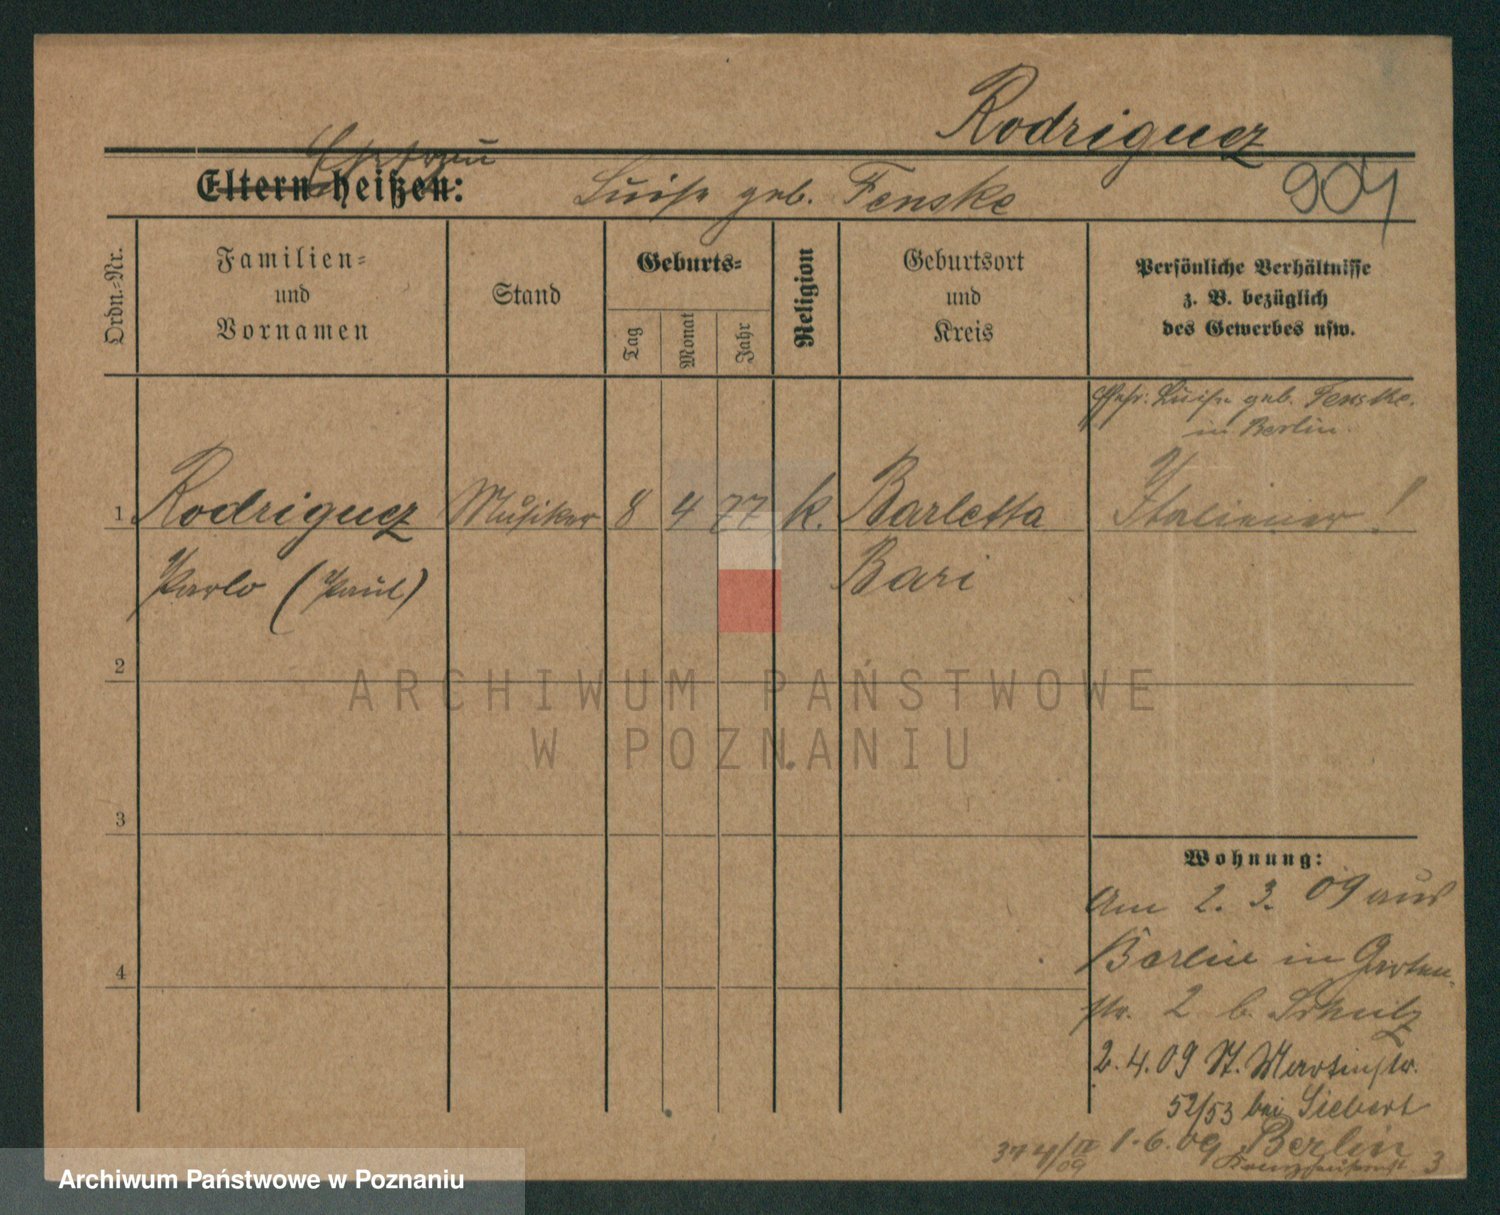 Rodriguez
Eltern heißen:
Luise geb. Fenske
901
Ordn.-Nr.
Familien-
und
Vornamen
Stand
Geburts-
Tag
Monat
Jahr
Religion
Geburtsort
und
Kreis
Persönliche Verhältnisse
z. B. bezüglich
des Gewerbes usw.
Luise geb. Fenske.
in Berlin.
1 Rodriguez Musiker 8 4 77 k. Barletta Italiener!
Parlo (Paul) Bari
2
ARCHIWUM PAŃSTWOWE
W POZNANIU
3
Wohnung:
Am 2. 3. 09 aus
Berlin in Garten-
4
str. 2 b. Schulz
2.4.09 St. Martinstr.
52/53 bei Siebert
1.6.09 Berlin
3
Archiwum Państwowe w Poznaniu